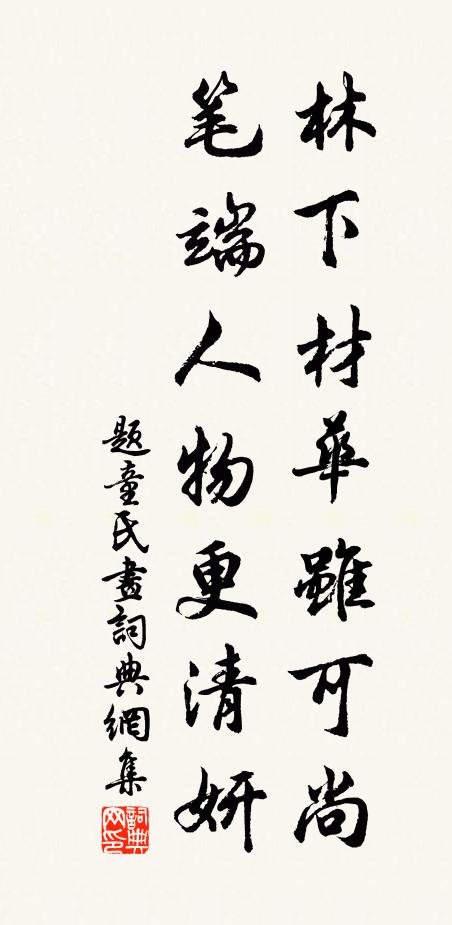 林下材華雖可尚
笔端人物更清妍
題童氏畫詞典網集
詞典网印